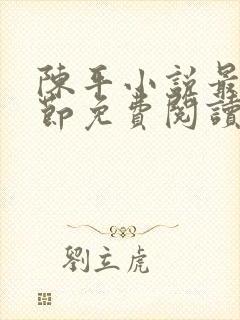 陳平小說最
節免費閱讀
劉立虎